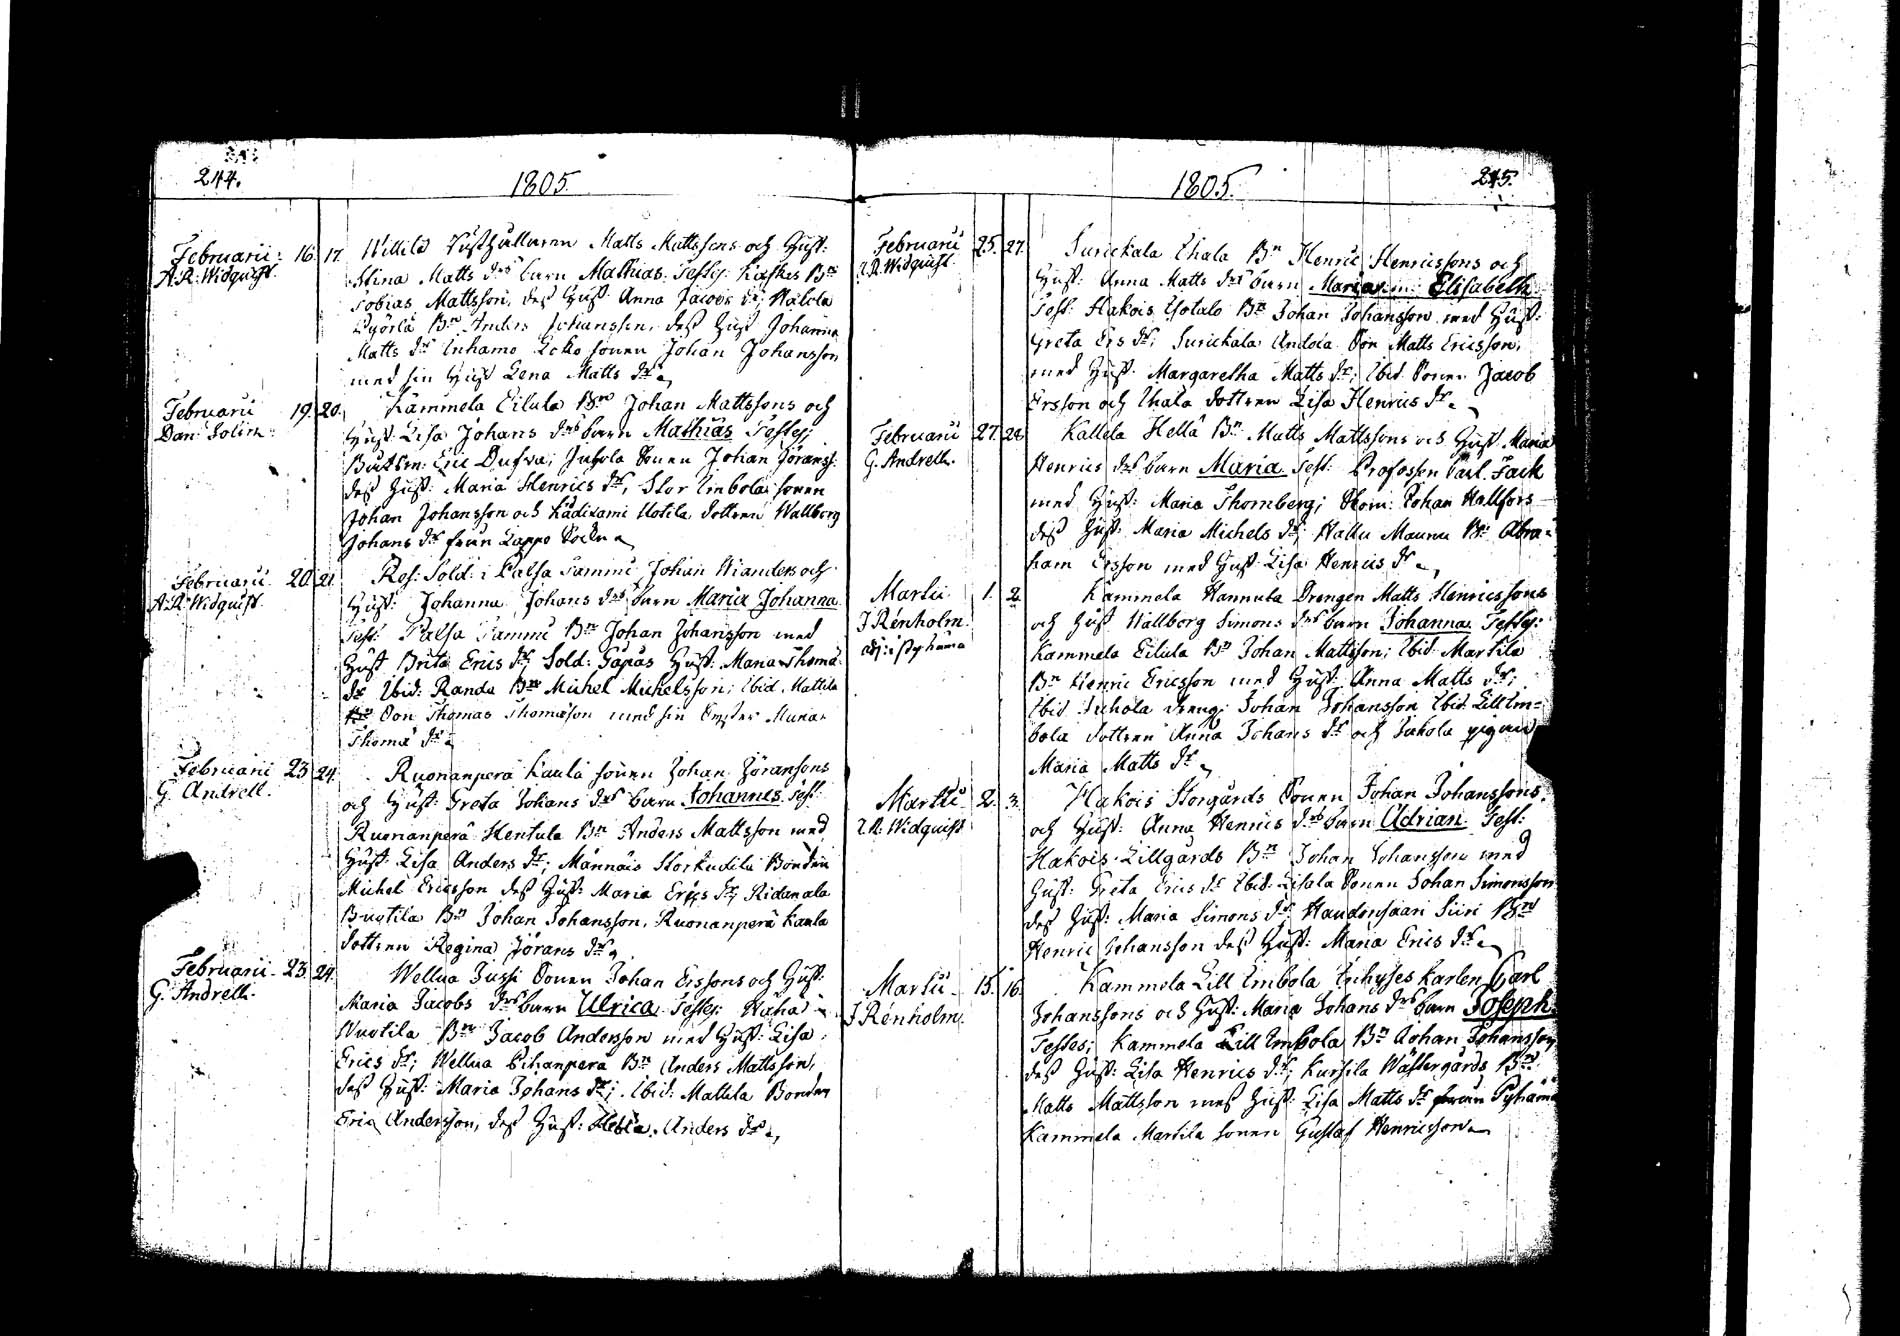 244.
1805
Februarii 16. 17. Wittila Matts Mattssons och Hust:
A. R. Widquist Stina Matts drs barn Mathias. Testes: Kaskes Bn
Tobias Mattsson, dess Hust: Anna Jacobs dr;
Bn Anders Johansson, dess Hust Johanna
Matts dr Inhamo Ecko sonen Johan Johansson
med sin Hust Lena Matts dr.
Februarii 19. 20. Kammela Eilula Bn Johan Mattssons och
Dan: Solin: Hust: Lisa Johans drs barn Mathias Testes;
Eric Dufva; Juhola Sonen Johan Jöranss:
dess Hust: Maria Henrics dr; Stor Imbola sonen
Johan Johansson och Kådixami Uotila dottren Wallborg
Johans dr från Lappo Sockn
Februarii 20. 21. Res: Sold: i Palsa Tammi Johan Wianders och
A. R. Widquist. Hust: Johanna Johans drs barn Maria Johanna
Test: Palsa Tammi Bn Johan Johansson med
Hust Brita Erics dr, Sold: Gåpås Hust: Maria Thomæ
dr Ibid: Randa Bn Michel Michelsson; Ibid. Mattila
Son Thomas Thomæson med sin Syster Maria
Thomæ dr.
Februarii 23 24. Ruonanperä Kaula sonen Johan Jöransons
G. Andrell. och Hust: Greta Johans drs barn Johannes. Test:
Ruonanperä Hentula Bn Anders Mattsson med
Hust Lisa Anders dr; Männäis Storkudila Bonden
Michel Ericsson dess Hust: Maria Erics dr; Ridanala
Bugtila Bn Johan Johansson, Ruonanperä Kaula
dottren Regina Jörans dr.
Februarii. 23. 24. Wellua Jussi Sonen Johan Erssons och Hust:
G. Andrell. Maria Jacobs drs barn Ulrica Testes: Waha
Wuotila Bn Jacob Andersson med Hust: Lisa
Erics dr; Wellua Pihanperä Bn Anders Mattsson,
dess Hust: Maria Johans dr; Ibid: Mattila Bonden
Eric Andersson, dess Hust: Anders dr.
1805.
245.
Februarii 25. 27. Surickala Uhala Bn Henric Henricssons och
A. R. Widquist Hust: Anna Matts drs barn Maria Elisabeth
Test: Hakois Ylotalo Bn Johan Johansson med Hust:
Greta Ers dr; Surickala Andola Son Matts Ericsson,
med Hust: Margaretha Matts dr; Ibid. Sonen Jacob
Ersson och Uhala dottren Lisa Henrics dr.
Februarii 27. 28. Kallela Hellä Bn Matts Mattssons och Hust Maria
G. Andrell. Henrics drs barn Maria Test: Profossen Carl Fack
med Hust: Maria Thomberg; Johan Hallfors
dess Hust: Maria Michels dr; Hallu Maunu Bn Abra-
ham Ersson med Hust Lisa Henrics dr.
Martii 1. 2. Kammela Hannula Drengen Matts Henricssons
J Rénholm. och Hust Wallborg Simons drs barn Johanna Testes:
adj: i Pyhäma Kammela Eilula Bn Johan Mattsson; Ibid Martila
Bn Henric Ericsson med Hust: Anna Matts dr;
Ibid Juhola dreng Johan Johansson Ibid Lill Im-
bola dottren Anna Johans dr och Juhola pigan
Maria Matts dr.
Martii 2. 3. Hakois Storgårds Sonen Johan Johanssons.
A. R. Widquist och Hust: Anna Henrics drs barn Adrian Test:
Hakois Lillgårds Bn Johan Johansson med
Hust: Greta Erics dr Ibid: Eisala Sonen Johan Simonsson
dess Hust: Maria Simons dr, Haudonsaari Siiri Bn
Henric Johansson dess Hust: Maria Erics dr.
Martii 15. 16. Kammela Lill Imbola Inhyses karlen Carl
J Rénholm. Johanssons och Hust: Maria Johans drs barn Joseph.
Testes; Kammela Lill Imbola Bn Johan Johansson
dess Hust: Lisa Henrics dr; Kursila Wästergårds Bn
Matts Mattsson med Hust: Lisa Matts dr från Pyhämä
Kammela Martila sonen Gustaf Henricsson